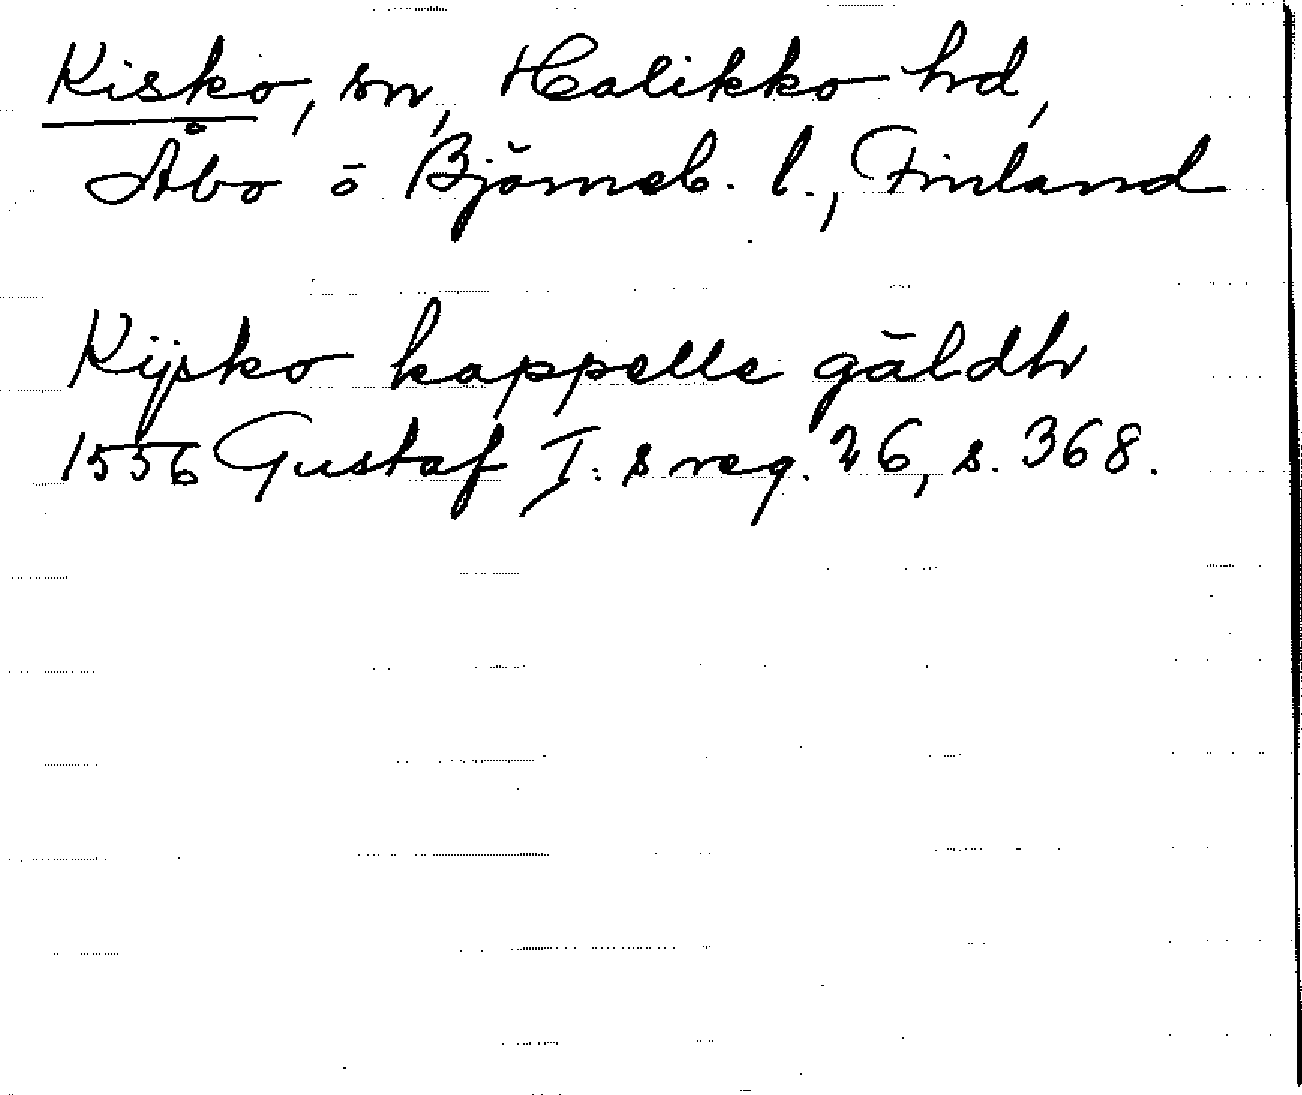 Kisko, sn, Halikko hd,
Åbo o Björneb. l., Finland
Kijsko kappelle gäldh
1556 Gustaf I:s reg. 26, s. 368.